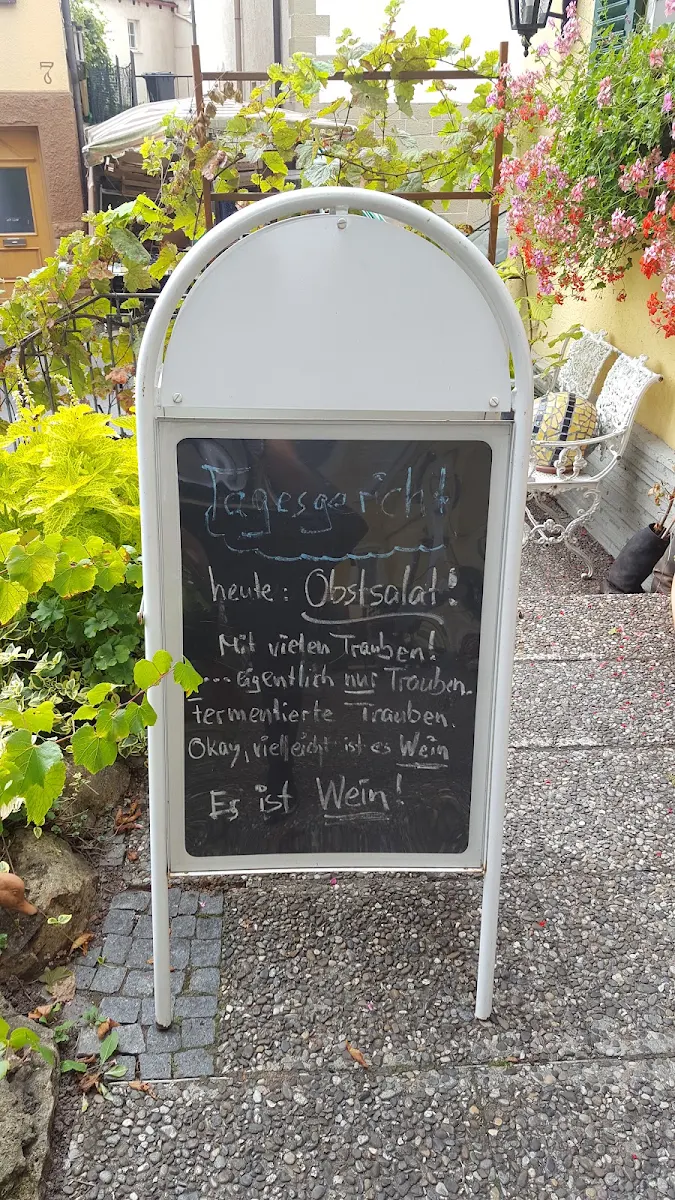 7
Tagesgericht
heute: Obstsalat!
Mit vielen Trauben!
... eigentlich nur Trauben.
fermentierte Trauben.
Okay, vielleicht ist es Wein
Es ist Wein!